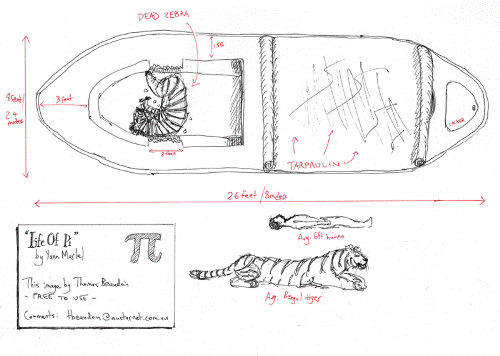 DEAD ZEBRA
3 feet
8 feet/
2.4
metres
2 feet
LOCKER
TARPAULIN
26 feet/8 metres
"Life Of Pi"
by Yann Martel
π
This image by Thomas Beaudoin
- FREE TO USE -
Comments: tbeaudoin@
Avg. 6ft human
Avg. Bengal tiger